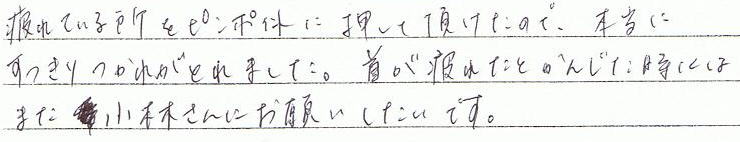 疲れている所をピンポイントに押して頂けたので、本当に
すっきりつかれがとれました。首が疲れたとかんじた時には
また小林さんにお願いしたいです。